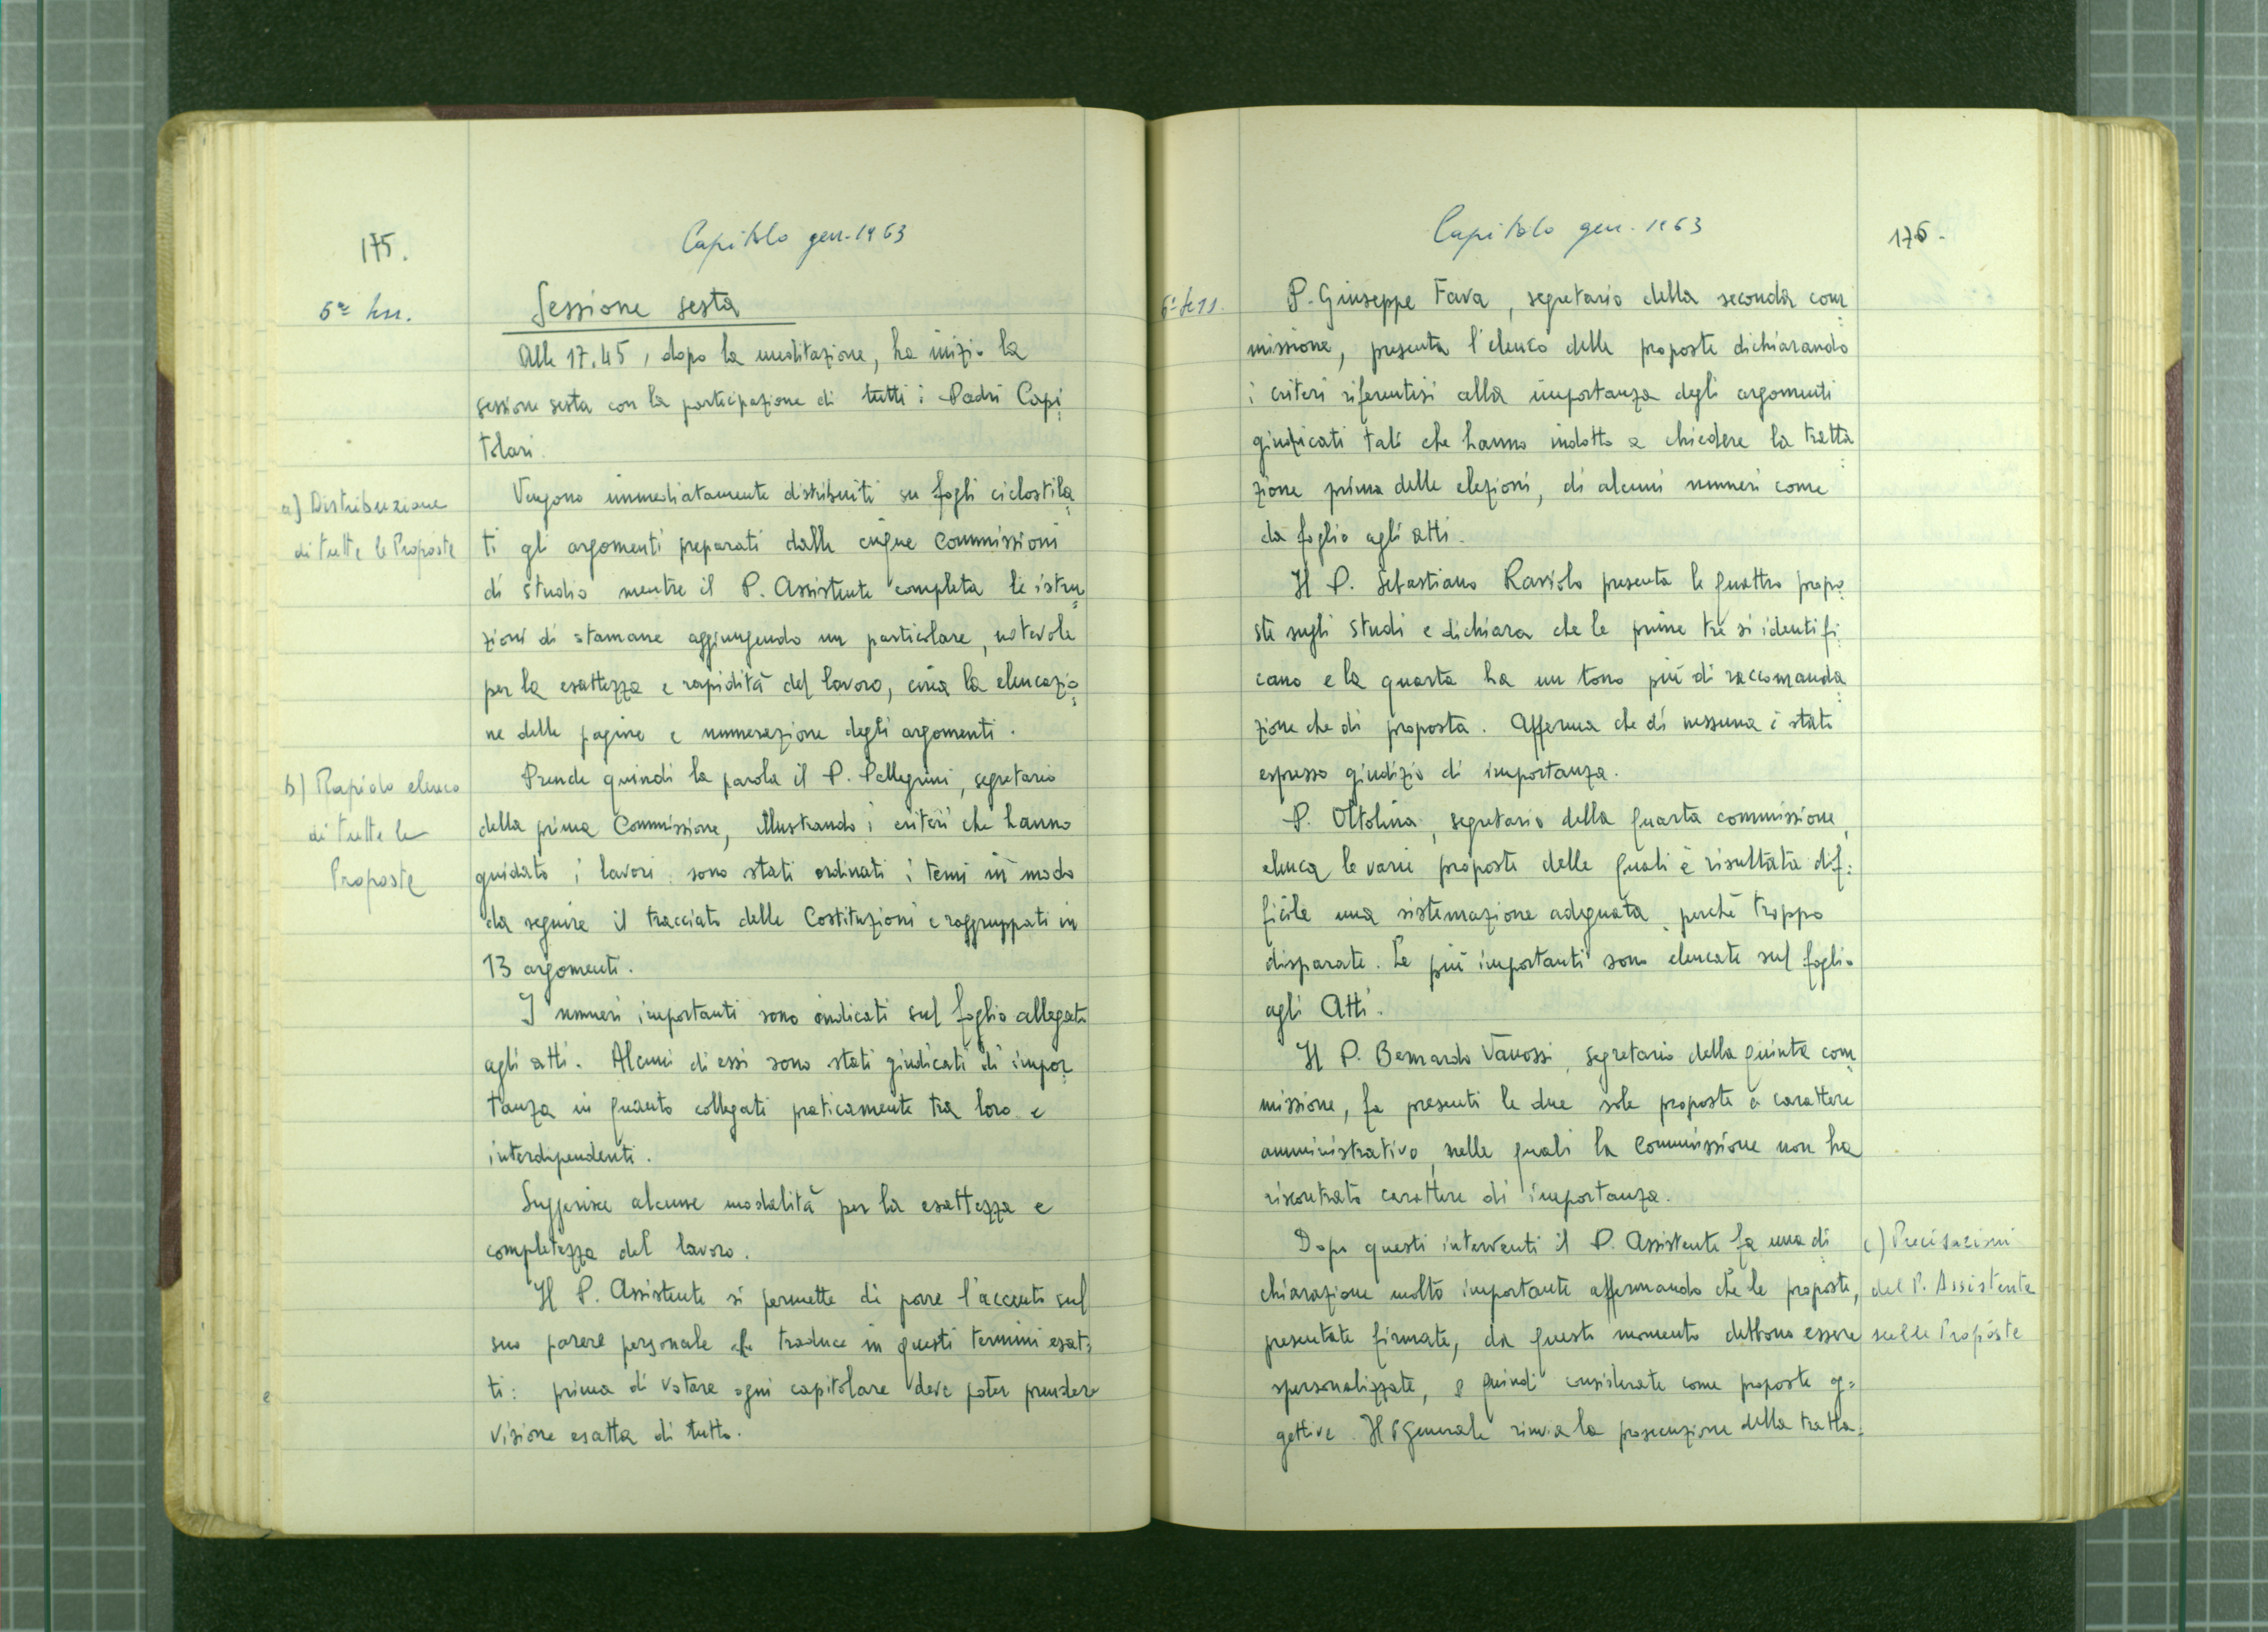 175.
Capitolo gen. 1963
6ª Sess.
Sessione sesta
Alle 17.45, dopo la meditazione, ha inizio la
sessione sesta con la partecipazione di tutti i Padri Capi
tolari.
a) Distribuzione
di tutte le Proposte
Vengono immediatamente distribuiti su fogli ciclostila
ti gli argomenti preparati dalle cinque Commissioni
di studio mentre il P. Assistente completa le istru
zioni di stamane aggiungendo un particolare, notevole
per la esattezza e rapidità del lavoro, circa la elencazio
ne delle pagine e numerazione degli argomenti.
b) Rapido elenco
di tutte le
Proposte
Prende quindi la parola il P. Pellegrini, segretario
della prima Commissione, illustrando i criteri che hanno
guidato i lavori: sono stati ordinati i temi in modo
da seguire il tracciato delle Costituzioni e raggruppati in
13 argomenti.
I numeri importanti sono indicati sul foglio allegato
agli atti. Alcuni di essi sono stati giudicati di impor
tanza in quanto collegati praticamente tra loro e
interdipendenti.
Suggerisce alcune modalità per la esattezza e
completezza del lavoro.
Il P. Assistente si permette di porre l'accento sul
suo parere personale che traduce in questi termini esat=
ti: prima di votare ogni capitolare deve poter prendere
visione esatta di tutto.
Capitolo gen. 1963
176.
6ª Sess.
P. Giuseppe Fava, segretario della seconda com
missione, presenta l'elenco delle proposte dichiarando
i criteri riferentisi alla importanza degli argomenti
giudicati tali che hanno indotto a chiedere la tratta
zione prima delle elezioni, di alcuni numeri come
da foglio agli atti.
Il P. Sebastiano Raviolo presenta le quattro propo
ste sugli studi e dichiara che le prime tre si identifi
cano e la quarta ha un tono più di raccomanda
zione che di proposta. Afferma che di nessuna è stato
espresso giudizio di importanza.
P. Ottolina, segretario della quarta commissione,
elenca le varie proposte delle quali è risultata dif=
ficile una sistemazione adeguata, perché troppo
disparate. Le più importanti sono elencate sul foglio
agli Atti.
Il P. Bernardo Vanossi, segretario della quinta com
missione, fa presenti le due sole proposte a carattere
amministrativo, nelle quali la Commissione non ha
riscontrato carattere di importanza.
Dopo questi interventi il P. Assistente fa una di
chiarazione molto importante affermando che le proposte,
presentate firmate, da questo momento debbono essere
spersonalizzate, e quindi considerate come proposte og=
gettive. Il P. Generale rinvia la prosecuzione della tratta=
c) Precisazioni
del P. Assistente
sulle Proposte